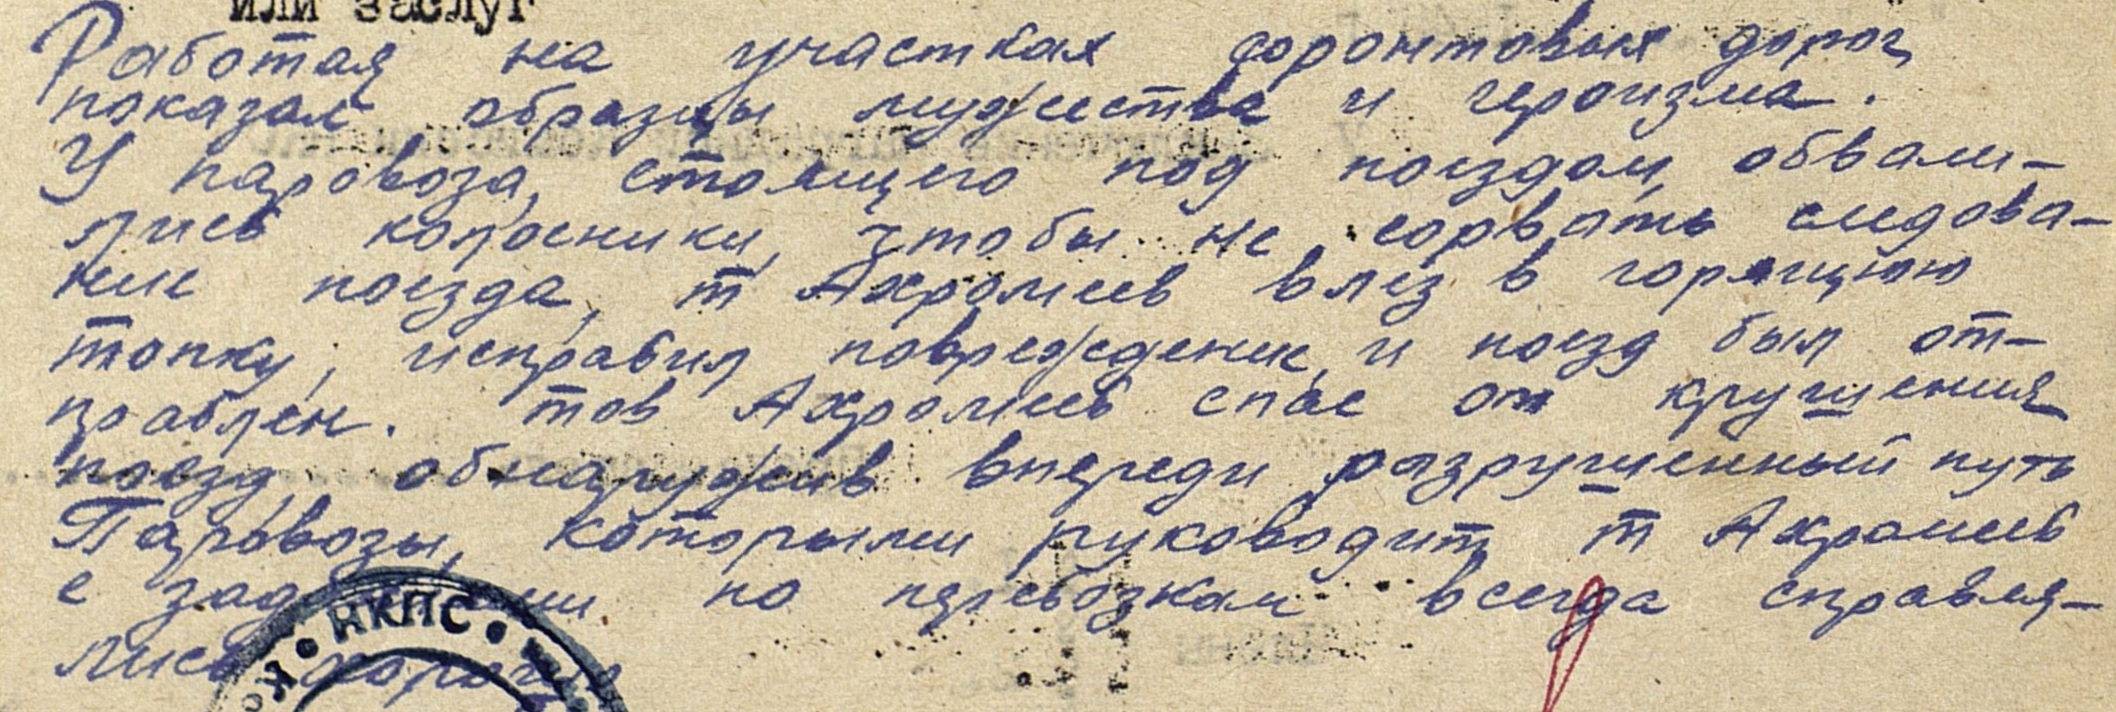 или заслуг
Работая на участках фронтовых дорог
показал образцы мужества и героизма.
У паровоза, стоящего под поездом, обвали-
лись колосники, чтобы не сорвать следова-
ние поезда, т Ахромеев влез в горящую
топку, исправил повреждение, и поезд был от-
правлен. тов Ахромеев спас от крушения
поезд, обнаружив впереди разрушенный путь
Паровозы, которыми руководит т Ахромеев
с заданиями по перевозкам всегда справля-
лись хорошо
НКПС